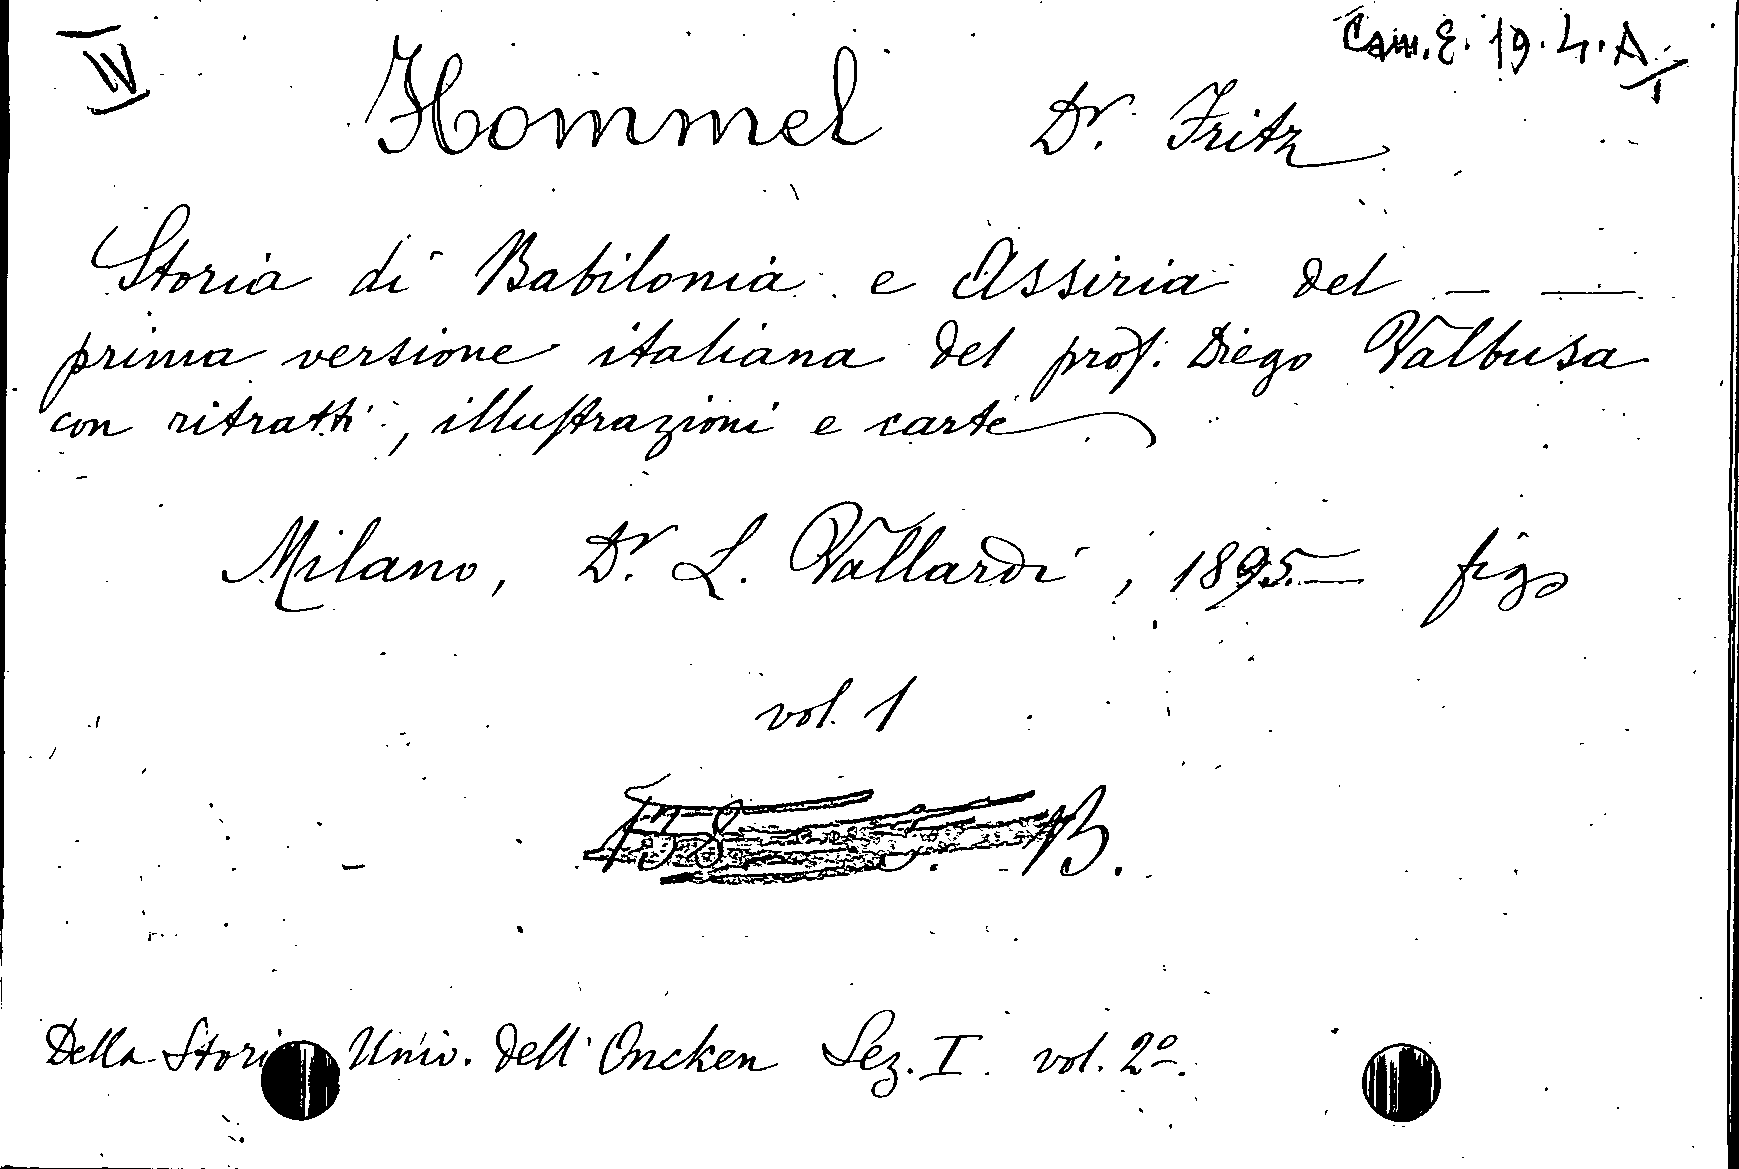 IV
Cam. E. 19. 4. A. I
Hommel Dr. Fritz
Storia di Babilonia e Assiria del — —
prima versione italiana del prof. Diego Valbusa
con ritratti, illustrazioni e carte
Milano, Dr. L. Vallardi, 1895.— figs
vol. 1
B.
Della Stori Univ. dell'Oncken Sez. I. vol. 2º.